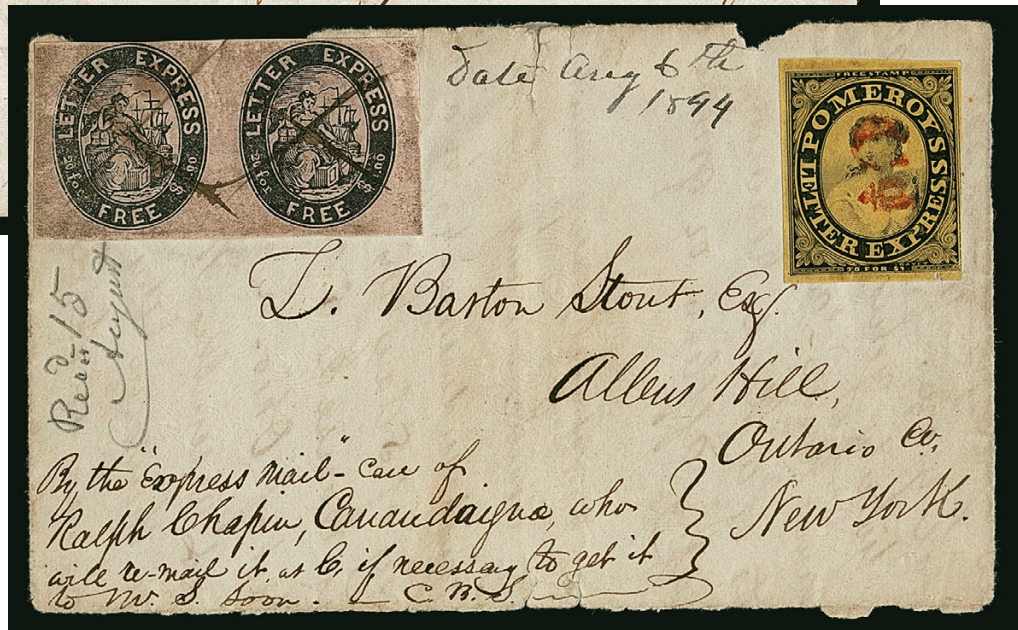 LETTER EXPRESS
20 for $1.00
FREE
LETTER EXPRESS
20 for $1.00
FREE
Date Aug 6th
1894
FREE STAMP
POMEROY'S
LETTER EXPRESS
20 FOR $1
Recd 15
August
L. Barton Stout, Esq.
Allens Hill,
Ontario Co.
New York.
By the "Express Mail" - care of
Ralph Chapin, Canandaigua, who
will re-mail it, at C. if necessary to get it
to Mr. S. soon. — C. B. S.